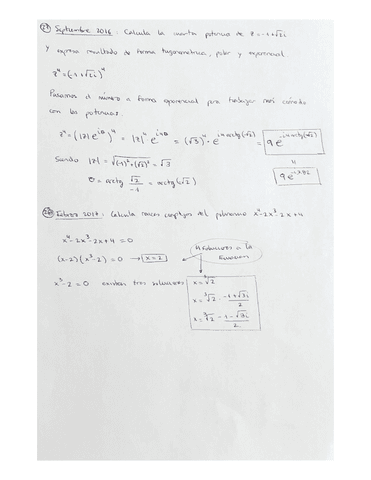 Septiembre 2016: Calcula la cuarta potencia de z=-1+√2i
y expresa resultado de forma trigonométrica, polar y exponencial
z⁴=(-1+√2i)⁴
Pasamos el número a forma exponencial para trabajar más cómodo
con las potencias.
z⁴=(|z|e^{iθ})⁴ = |z|⁴ e^{i4θ} = (√3)⁴ · e^{i4 arctg(-√2)} = 9e^{i4 arctg(-√2)}
Siendo |z| = √((-1)²+(√2)²) = √3
θ = arctg √2/-1 = arctg(-√2)
Febrero 2017: Calcula raíces complejas del polinomio x⁴-2x³-2x+4
x⁴-2x³-2x+4=0
4 soluciones a la
(x-2)(x³-2)=0 → x=2
ecuación
x³-2=0 existen tres soluciones
x=³√2
x=³√2 · -1+√3i/2
x=³√2 · -1-√3i/2